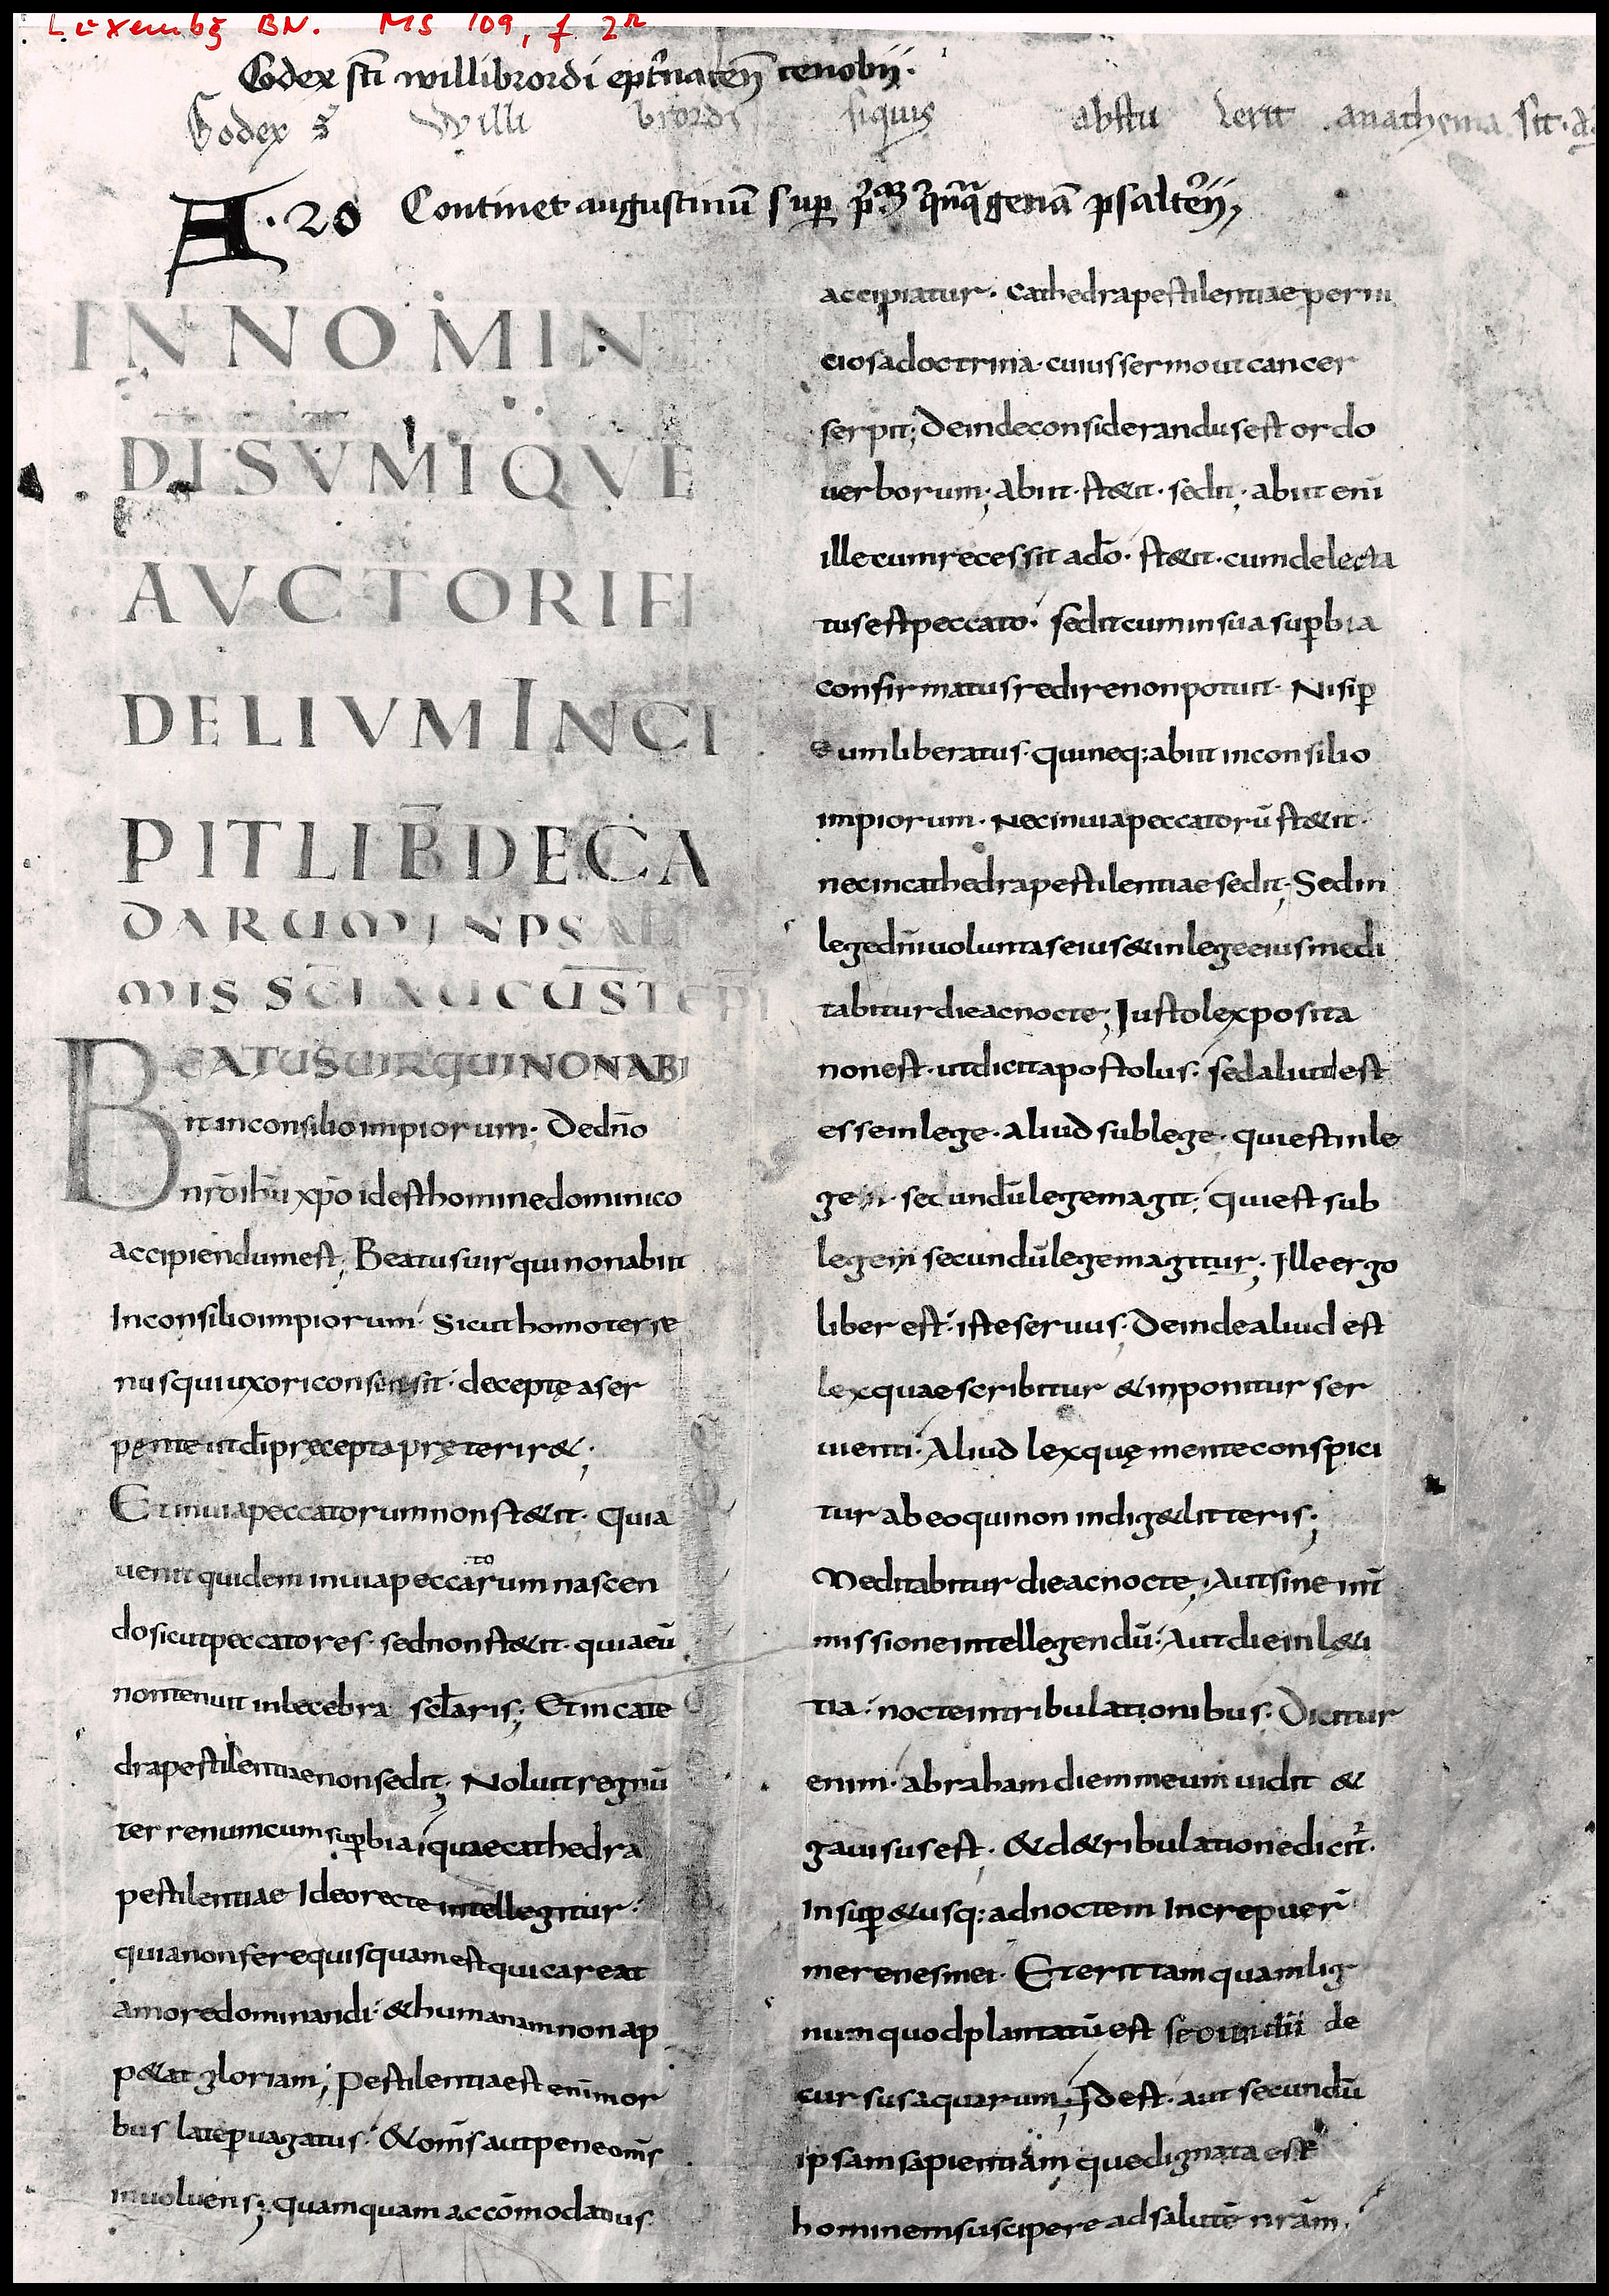 Luxembg BN. MS 109, f 2r
Codex sti willibrordi eptnacen cenobij.
Codex s Willi brordi siquis abstu lerit anathema sit. a
A. 20 Continet augustinū sup pm qnqagenā psalterij,
IN NOMIN
DI SVMIQVE
AVCTORIFI
DELIVM INCI
PIT LIB DECA
DARUM IN PSAL
MIS SCI AUGUST EPI
BEATUS UIR QUI NON ABI
it inconsilio impiorum; De dno
nro ihu xpo id est homine dominico
accipiendum est; Beatus uir qui non abiit
In consilio impiorum. Sicut homo terre
nus qui uxori consensit. deceptę a ser
pente ut di pręcepta pręterir&;
Et inuia peccatorum non st&it. Quia
uenit quidem inuia peccatorum nascen
do sicut peccatores. sed non st&it. quia eū
non tenuit inlecebra sclaris; Et in cate
dra pestilentiae non sedit; Noluit regnū
terrenum cum supbia. quae cathedra
pestilentiae Ideo recte intellegitur.
quia non fere quisquam est qui careat
amore dominandi. & humanam non ap
p&at gloriam; Pestilentia est enim mor
bus late puagatus. & omīs aut pene omīs
inuoluens; quamquam accōmodatius
accipiatur. cathedra pestilentiae perni
ciosa doctrina. cuius sermo ut cancer
serpit; Deinde considerandus est ordo
uerborum; abiit. st&it. sedit; abiit enī
ille cum recessit a dō. st&it. cum delecta
tus est peccato. sedit cum in sua supbia
confirmatus redire non potuit. Nisi p
eum liberatus. qui neq; abiit in consilio
impiorum. Nec inuia peccatorū st&it.
nec in cathedra pestilentiae sedit; Sed in
lege dnī uoluntas eius & in lege eius medi
tabitur die ac nocte; Iusto lex posita
non est. ut dicit apostolus. sed aliud est
esse in lege. Aliud sub lege. qui est in le
gem. secundū legem agit. Qui est sub
legem secundū legem agitur; Ille ergo
liber est. iste seruus. Deinde aliud est
lex quae scribitur & inponitur ser
uienti. Aliud lex quę mente conspici
tur ab eo qui non indig& litteris;
Meditabitur die ac nocte; Aut sine int
missione intellegendū. Aut die in l&i
tia. nocte in tribulationibus. Dicitur
enim. abraham diem meum uidit &
gauisus est. & d& ribulatione dicit.
Insup & usq; ad noctem Increpuer
me renes mei. Et erit tamquam lig
num quod plantatū est secundū de
cursus aquarum; Id est. aut secundū
ipsam sapientiam que dignata est
hominem suscipere ad salutē nrām.